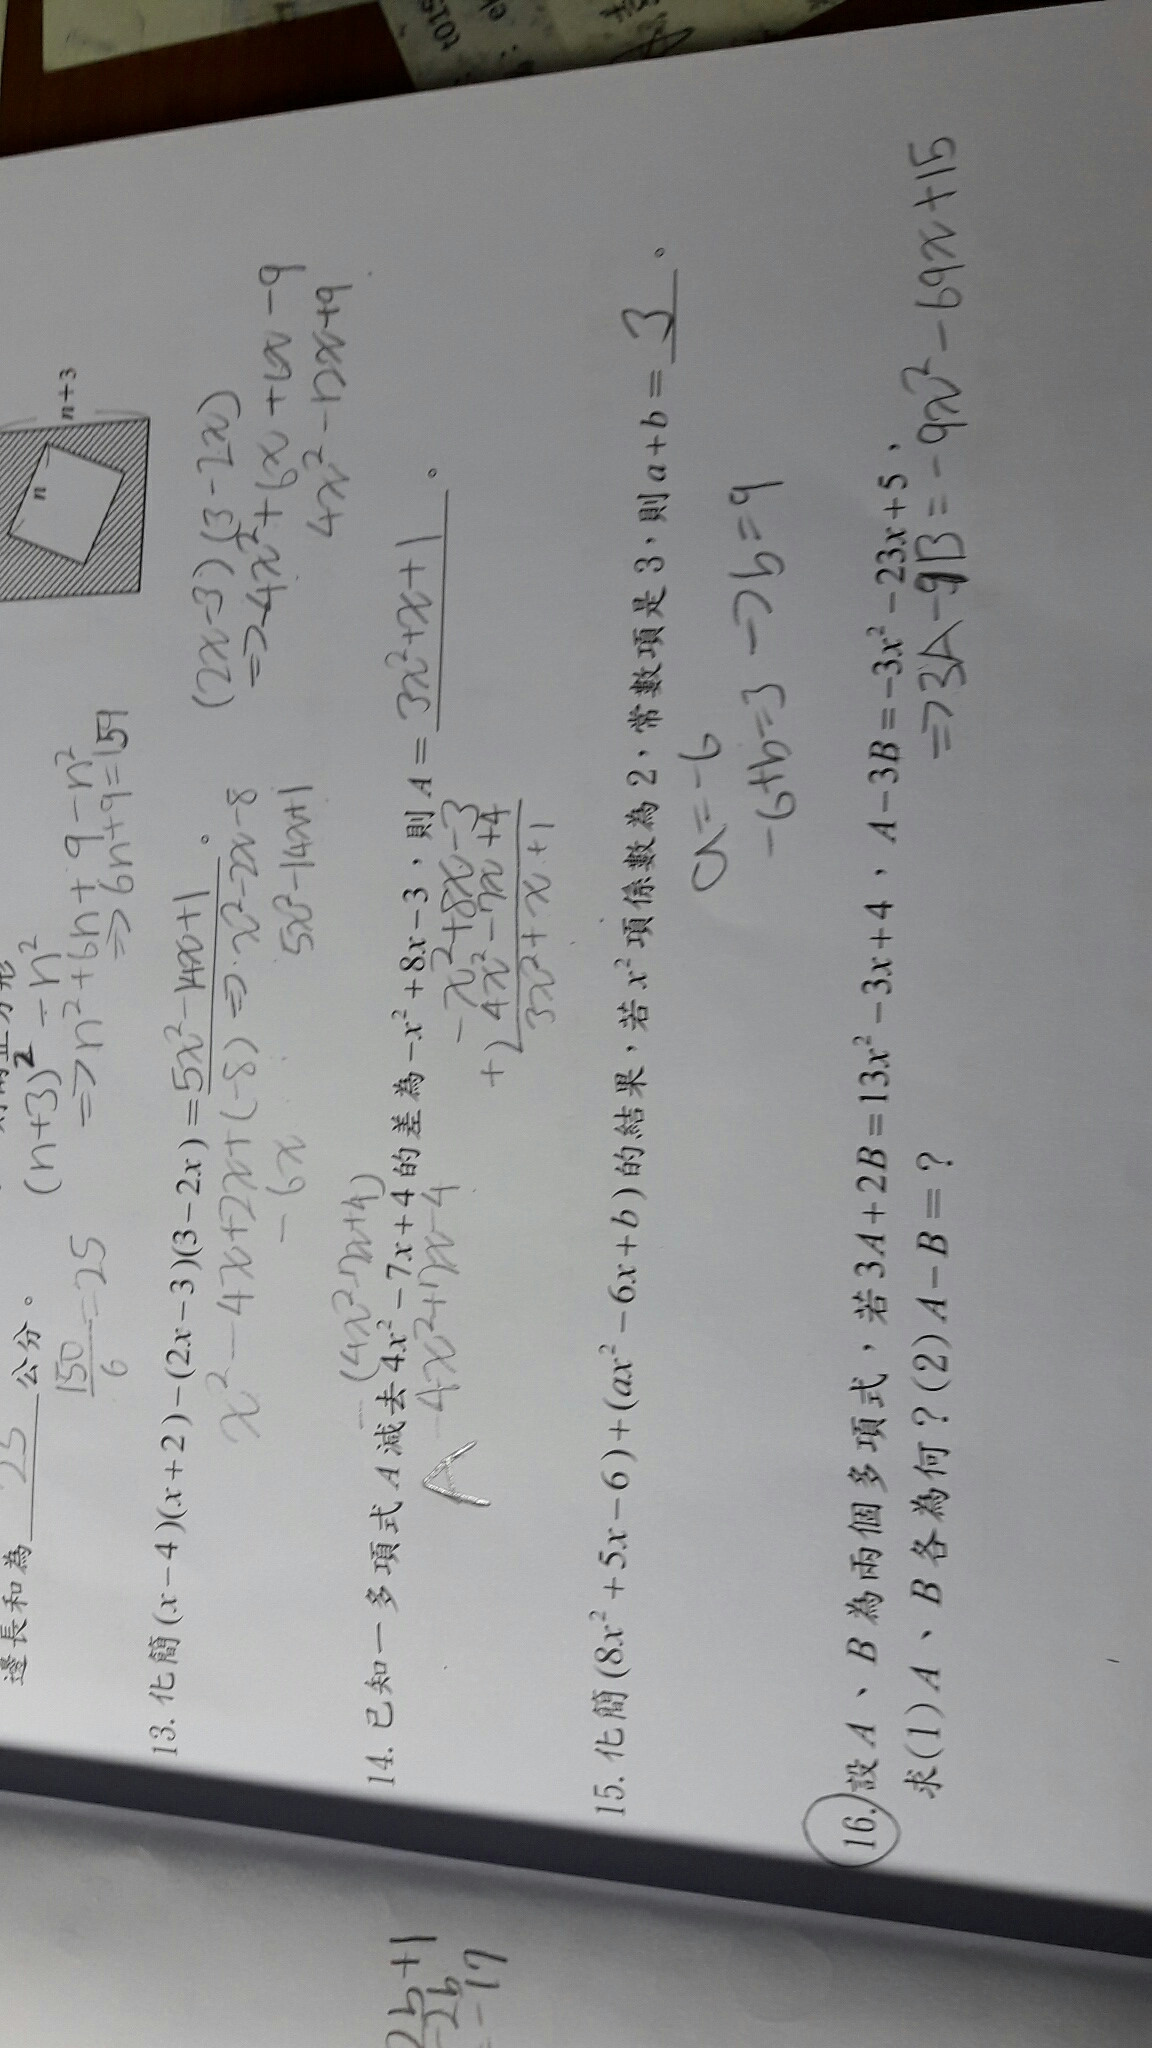 邊長和為 25 公分。
150/6 = 25
(n+3)² - n²
=> n² + 6n + 9 - n²
=> 6n + 9 = 159
n
n+3
13. 化簡(x-4)(x+2)-(2x-3)(3-2x)= 5x²-14x+1 。
x²-4x+2x+(-8) => x²-2x-8
-6x
5x²-14x+1
(2x-3)(3-2x)
=> -4x²+6x+6x-9
4x²-12x+9
-(4x²-7x+4)
14. 已知一多項式 A 減去 4x²-7x+4 的差為 -x²+8x-3,則 A = 3x²+x+1 。
A -4x²+7x-4
-x²+8x-3
+) 4x²-7x+4
3x²+x+1
15. 化簡(8x²+5x-6)+(ax²-6x+b)的結果,若 x² 項係數為 2,常數項是 3,則 a+b= 3 。
a=-6
-6+b=3 -> b=9
16. 設 A、B 為兩個多項式,若 3A+2B=13x²-3x+4,A-3B=-3x²-23x+5,
=> 3A-9B=-9x²-69x+15
求(1)A、B 各為何?(2)A-B=?
2b+1
-2b
=-17